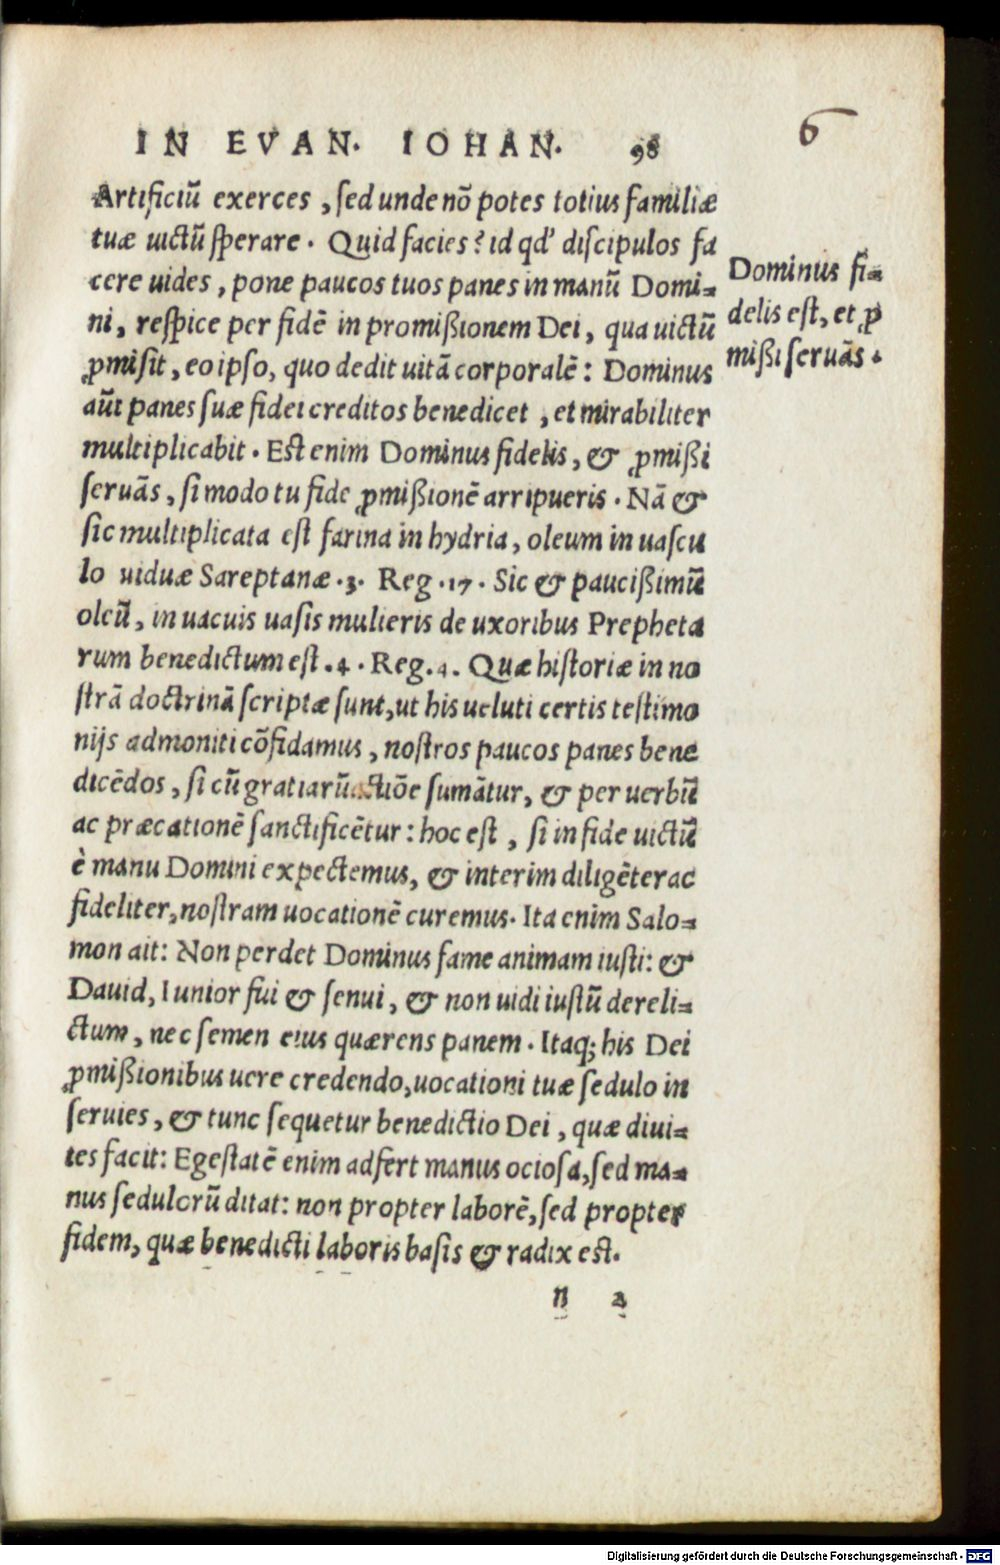 IN EVAN. IOHAN. 98
6
Artificiū exerces, sed unde nō potes totius familiæ
tuæ uictū sperare. Quid facies? id qd' discipulos fa
cere uides, pone paucos tuos panes in manū Domi-
ni, respice per fidē in promißionem Dei, qua uictū
ꝓmisit, eo ipso, quo dedit uitā corporalē: Dominus
aūt panes suæ fidei creditos benedicet, et mirabiliter
multiplicabit. Est enim Dominus fidelis, & ꝓmißi
seruās, si modo tu fide ꝓmißionē arripueris. Nā &
sic multiplicata est farina in hydria, oleum in uascu
lo uiduæ Sareptanæ .3. Reg .17. Sic & paucißimū
oleū, in uacuis uasis mulieris de uxoribus Prepheta
rum benedictum est .4. Reg. 4. Quæ historiæ in no
strā doctrinā scriptæ sunt, ut his ueluti certis testimo
nijs admoniti cōfidamus, nostros paucos panes bene
dicēdos, si cū gratiarū actiōe sumātur, & per uerbū
ac præcationē sanctificētur: hoc est, si in fide uictū
è manu Domini expectemus, & interim diligēter ac
fideliter, nostram uocationē curemus. Ita enim Salo-
mon ait: Non perdet Dominus fame animam iusti: &
Dauid, Iunior fui & senui, & non uidi iustū dereli-
ctum, nec semen eius quærens panem. Itaq; his Dei
ꝓmißionibus uere credendo, uocationi tuæ sedulo in
seruies, & tunc sequetur benedictio Dei, quæ diui-
tes facit: Egestatē enim adfert manus ociosa, sed ma-
nus sedulorū ditat: non propter laborē, sed propter
fidem, quæ benedicti laboris basis & radix est.
n 2
Dominus fi-
delis est, et ꝓ
mißi seruās.
Digitalisierung gefördert durch die Deutsche Forschungsgemeinschaft - DFG